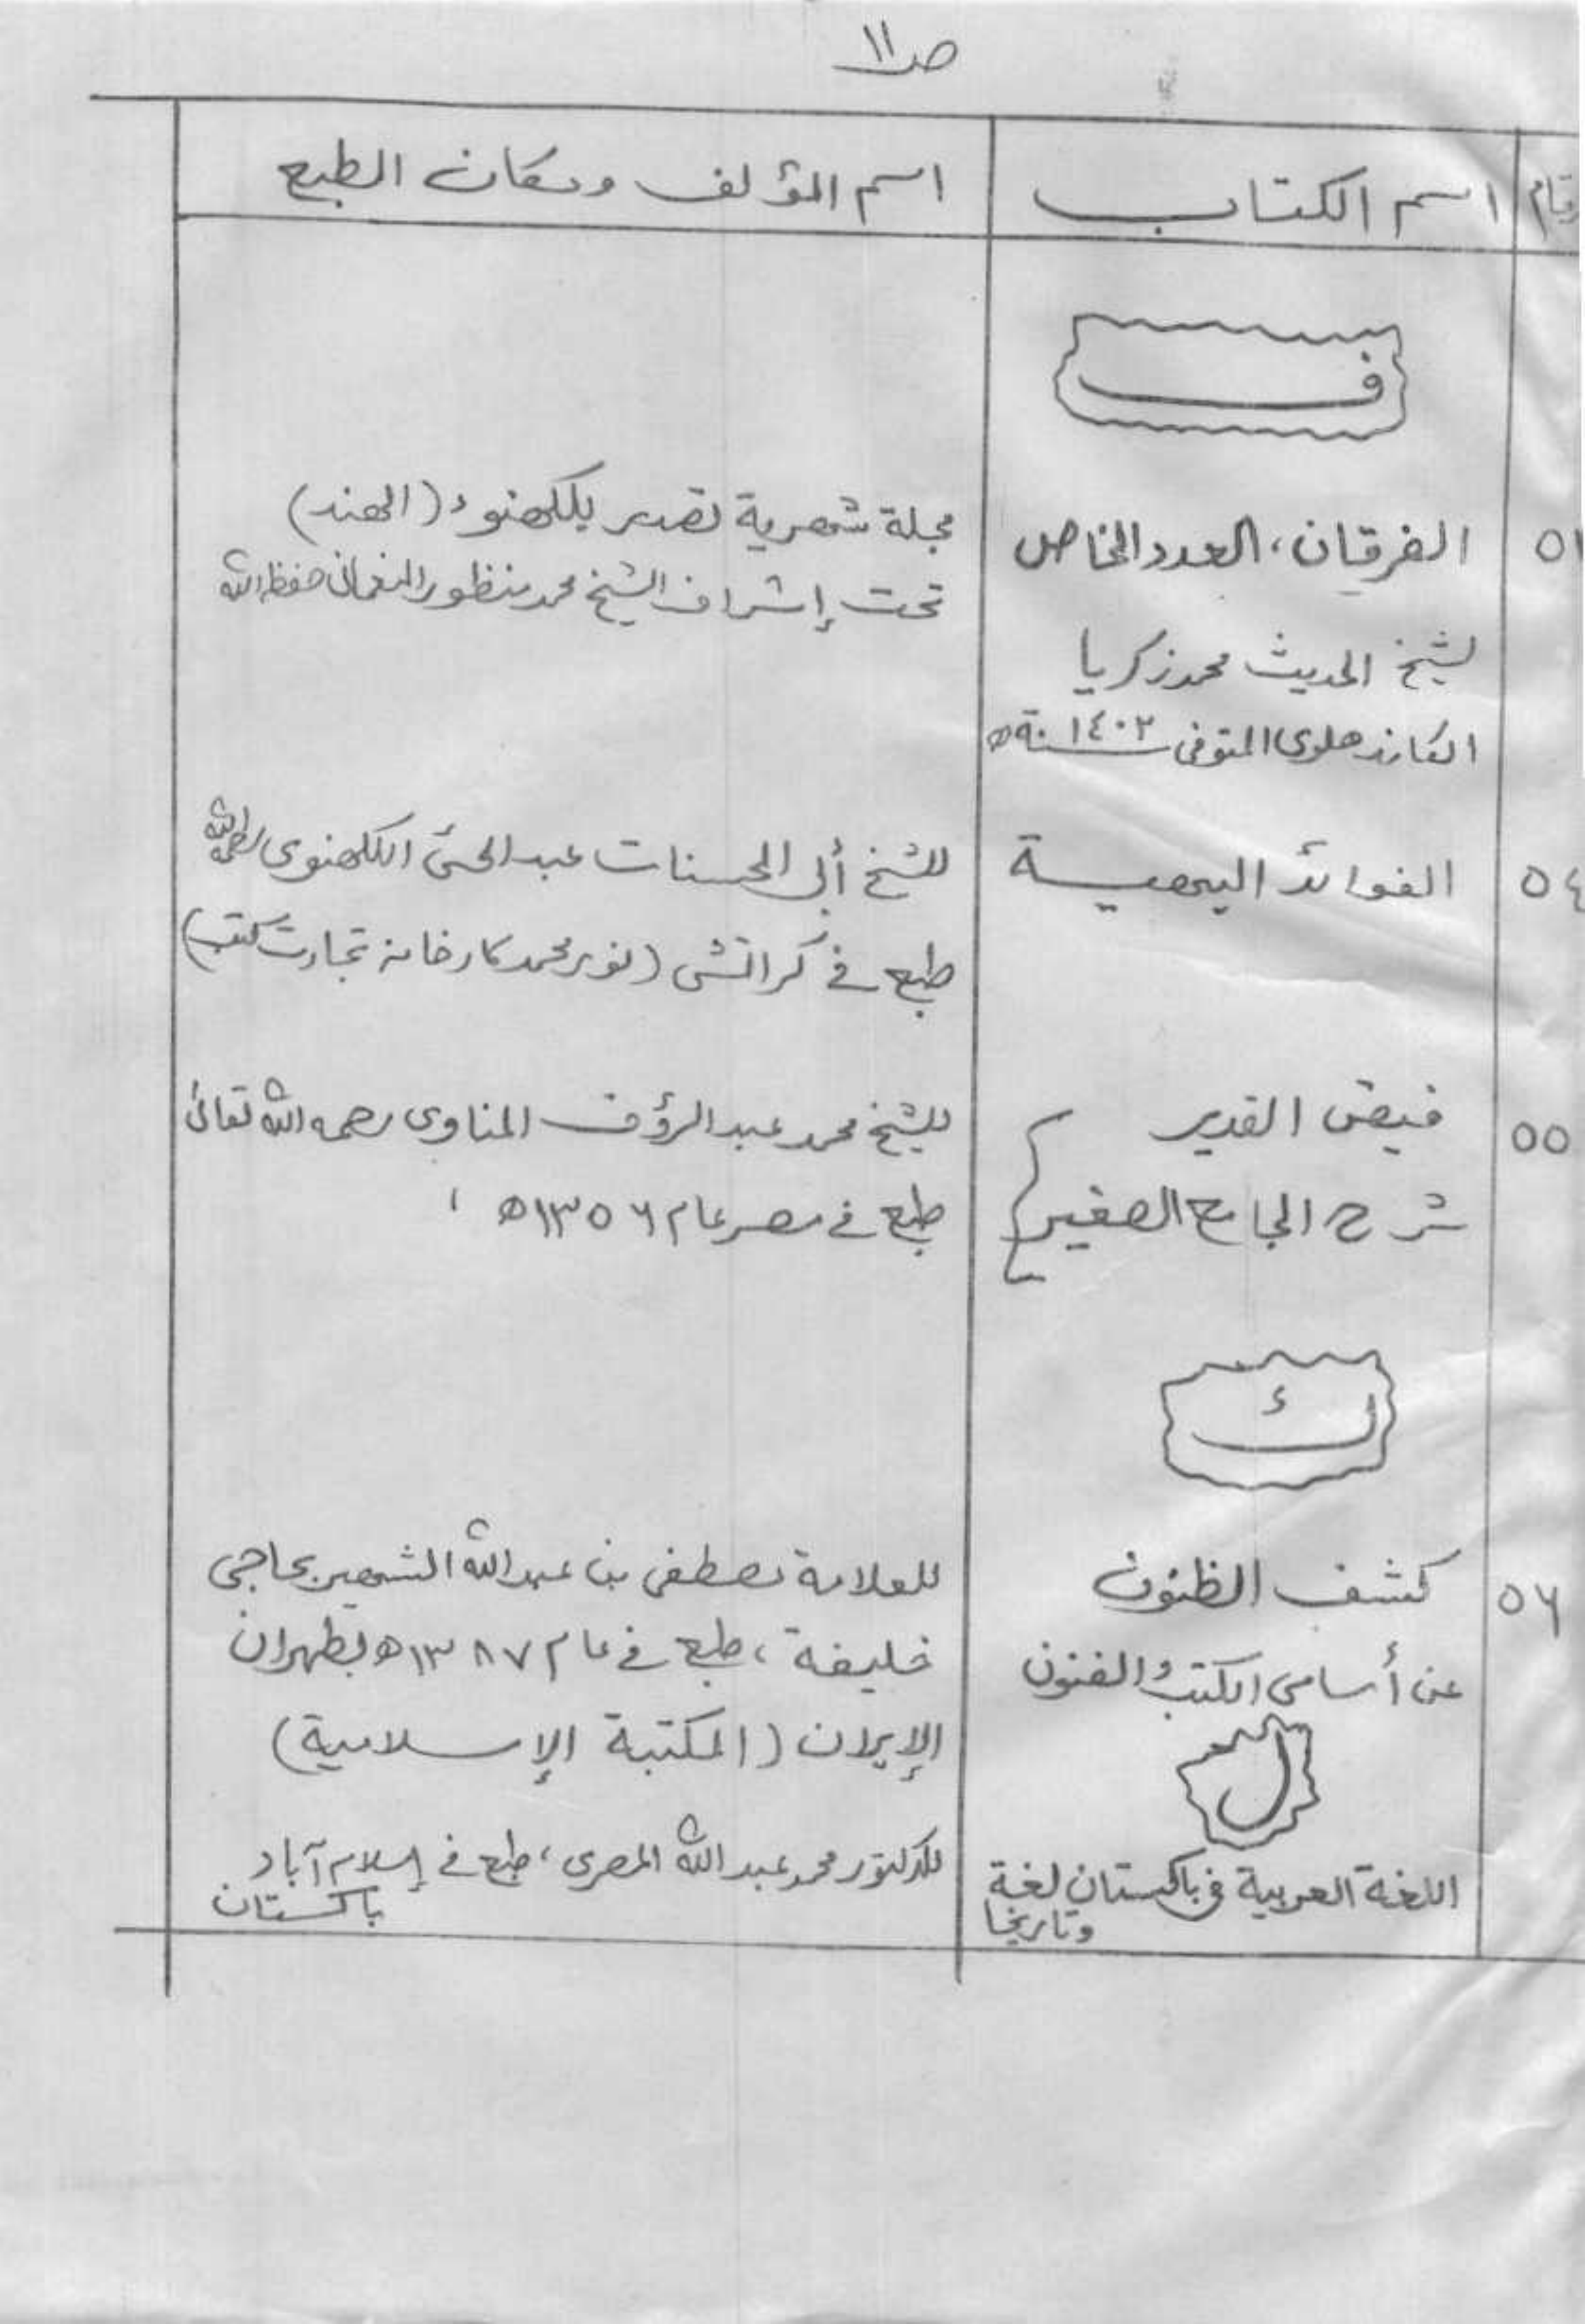 ص ١١
اسم الكتاب
اسم المؤلف ومكان الطبع
ف
الفرقان، العدد الخاص
لشيخ الحديث محمد زكريا
الكاندهلوى المتوفى سنة ١٤٠٢ھ
مجلة شهرية تصدر بلكهنوء (الهند)
تحت إشراف الشيخ محمد منظور النعمانى حفظه الله
٥٤
الفوائد البهية
للشيخ أبى الحسنات عبد الحئ اللكهنوى رحمه الله
طبع فى كراتشى (نور محمد كارخانه تجارت كتب)
٥٥
فيض القدير
شرح الجامع الصغير
للشيخ محمد عبد الرؤف المناوى رحمه الله تعالىٰ
طبع فى مصر عام ١٣٥٦ھ
ك
٥٦
كشف الظنون
عن أسامى الكتب والفنون
للعلامة مصطفى بن عبد الله الشهير بحاجى
خليفة، طبع فى عام ١٣٨٧ھ بطهران
الإيران (المكتبة الإسلامية)
ل
اللغة العربية فى باكستان لغة
وتاريخا
للدكتور محمد عبد الله المصرى، طبع فى إسلام آباد
باكستان